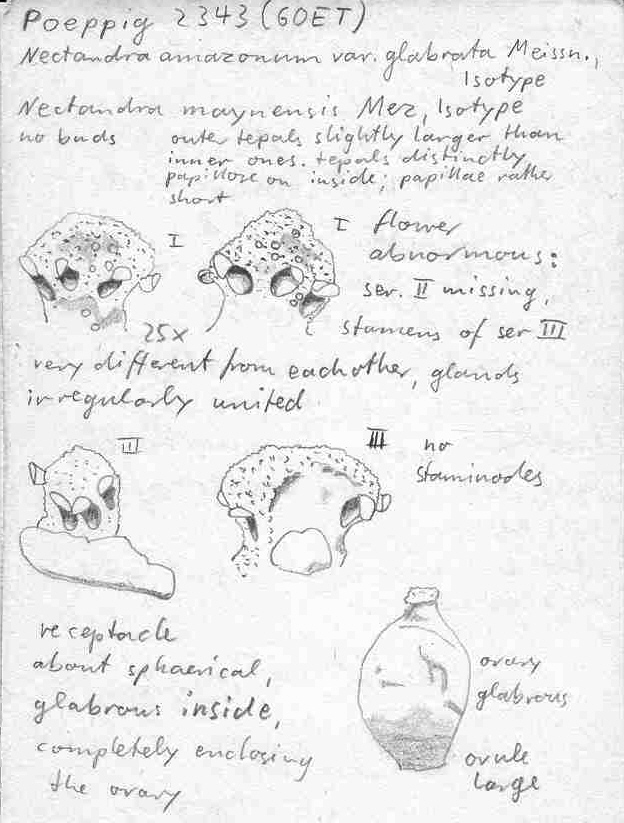 Poeppig 2343 (GOET)
Nectandra amazonum var. glabrata Meissn.,
Isotype
Nectandra maynensis Mez, Isotype
no buds
outer tepals slightly larger than
inner ones. tepals distinctly
papillose on inside; papillae rather
short
I
I
flower
abnormous:
ser. II missing,
25x
stamens of ser III
very different from eachother, glands
irregularly united
III
III
no
staminodes
receptacle
about sphaerical,
glabrous inside,
completely enclosing
the ovary
ovary
glabrous
ovule
large